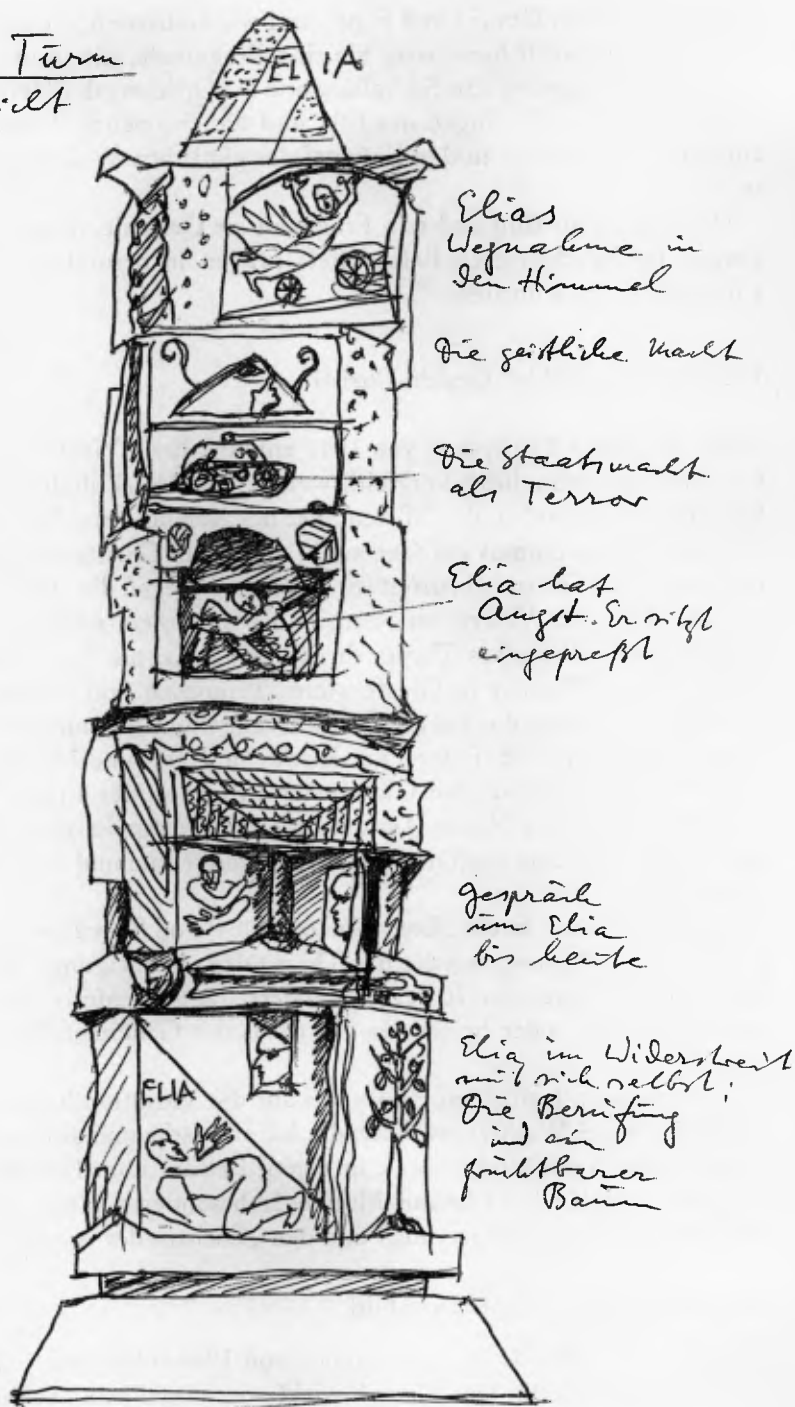 Turm
ELIA
Elias
Wegnahme in
den Himmel
Die geistliche Macht
Die Staatsmacht
als Terror
Elia hat
Angst. Er sitzt
eingepreßt
Gespräch
um Elia
bis heute
Elia im Widerstreit
mit sich selbst:
Die Berufung
und ein
fruchtbarer
Baum
ELIA